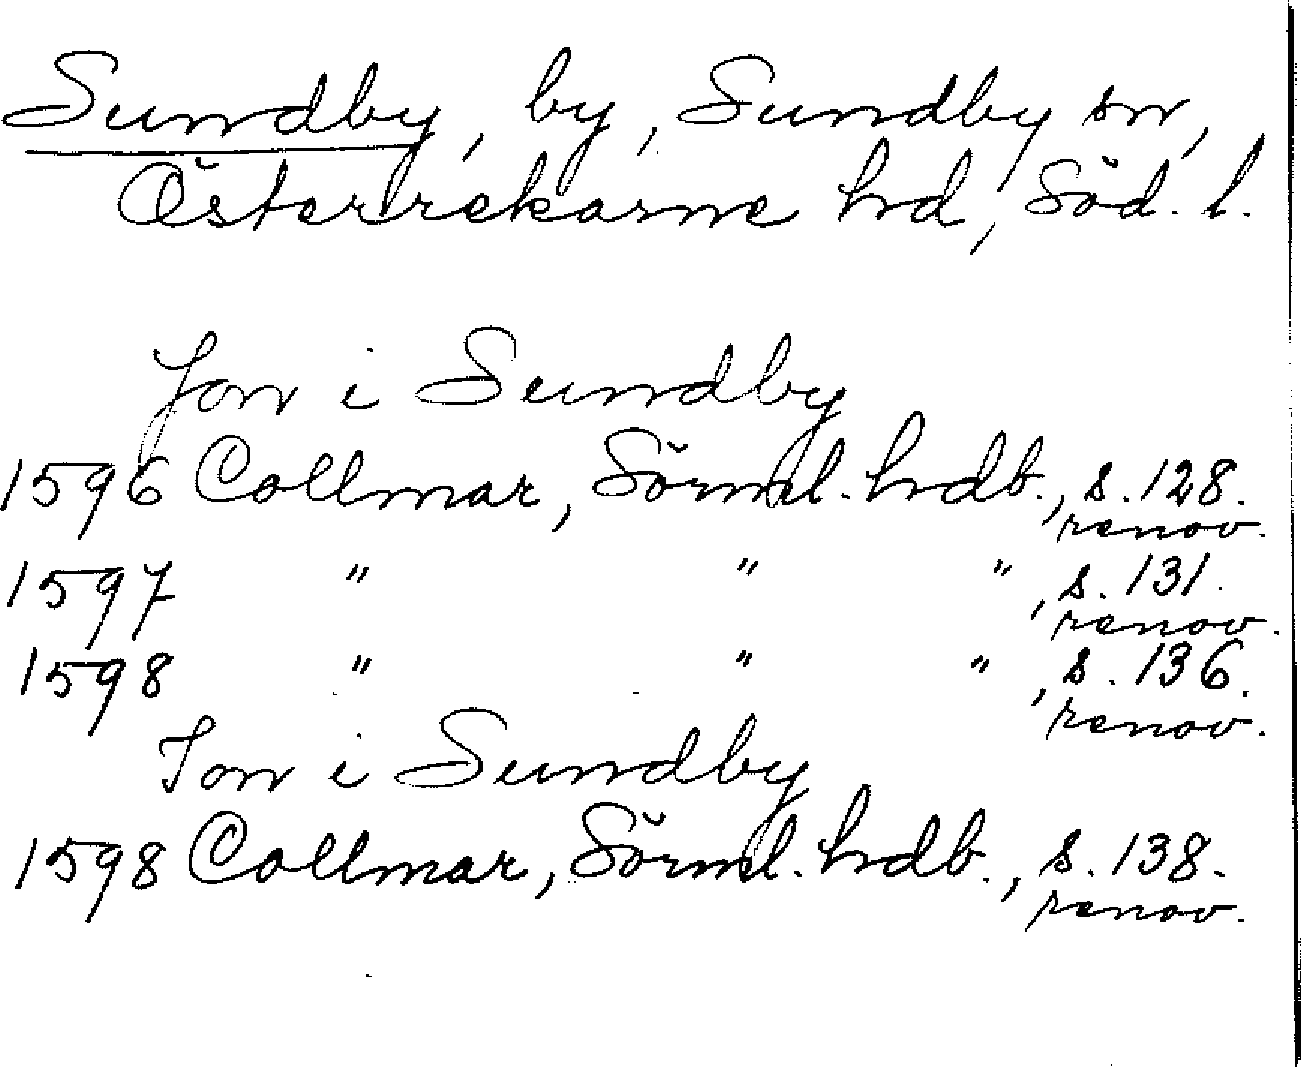 Sundby, by, Sundby sn,
Österrekarne hd, Söd. l.
Jon i Sundby
1596 Collmar, Sörml. hdb., s. 128.
renov.
1597 " " ", s. 131.
renov.
1598 " " ", s. 136.
renov.
Ion i Sundby
1598 Collmar, Sörml. hdb., s. 138.
renov.